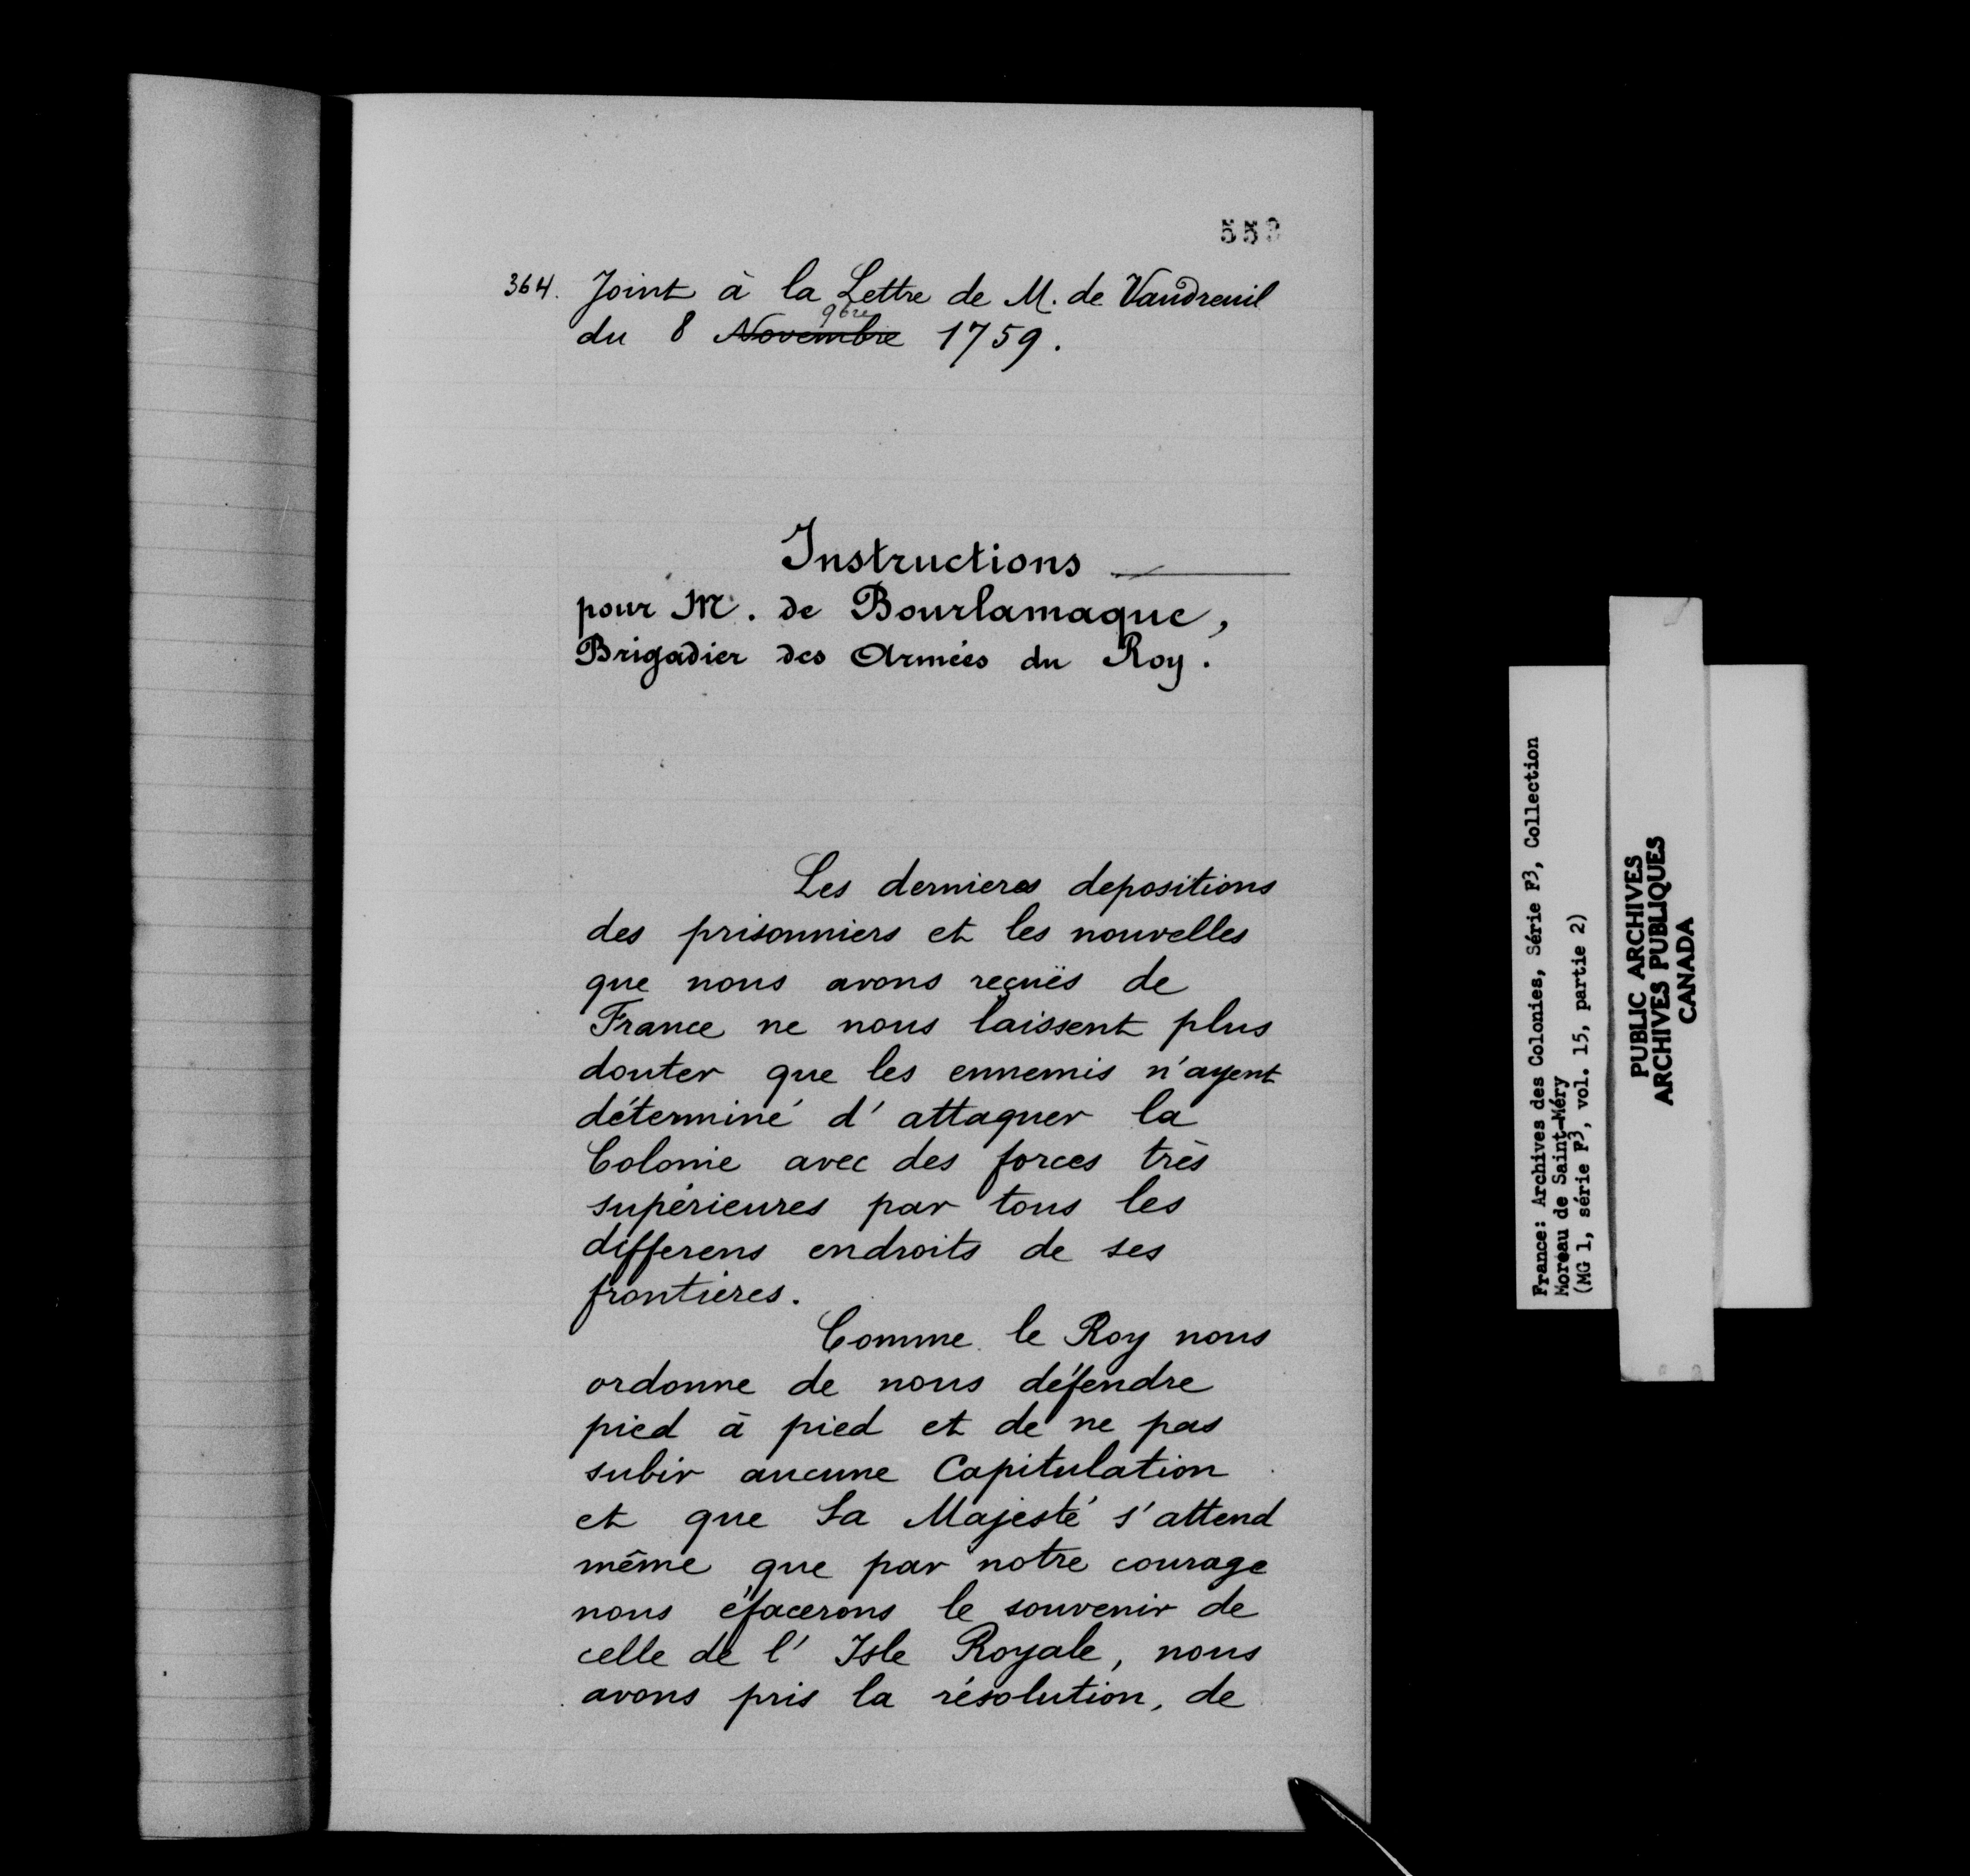 553
364. Joint à la Lettre de M. de Vaudreuil
9bre
du 8 Novembre 1759.
Instructions
pour M. de Bourlamaque,
Brigadier des Armées du Roy.
Les dernieres depositions
des prisonniers et les nouvelles
que nous avons reçuës de
France ne nous laissent plus
douter que les ennemis n'ayent
déterminé d'attaquer la
Colonie avec des forces très
supérieures par tous les
differens endroits de ses
frontières.
Comme le Roy nous
ordonne de nous défendre
pied à pied et de ne pas
subir aucune Capitulation
et que Sa Majesté s'attend
même que par notre courage
nous éfacerons le souvenir de
celle de l'Isle Royale, nous
avons pris la résolution, de
France: Archives des Colonies, Série F3, Collection
Moreau de Saint-Méry
(MG 1, série F3, vol. 15, partie 2)
PUBLIC ARCHIVES
ARCHIVES PUBLIQUES
CANADA